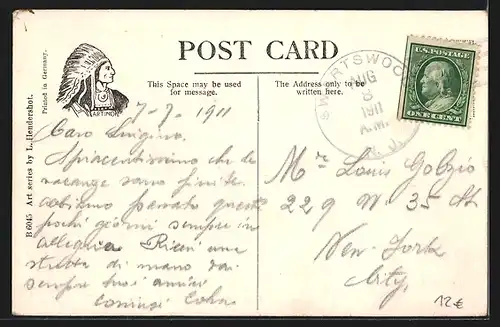 Printed in Germany.
B 6045 Art series by L. Hendershot.
ARTINO
POST CARD
This Space may be used
for message.
The Address only to be
written here.
SWARTSWOOD
AUG
8
1911
A.M.
N. J.
U.S. POSTAGE
ONE CENT
7-7. 1911
Caro Luigino,
Spiacentissimo che le
vacanze sono finite
abbiamo passato questi
pochi giorni sempre in
allegria Ricevi una
stretta di mano dai
sempre tuoi amici
Mr Louis Golzio
229 W. 35 St
New-York
City.
12€